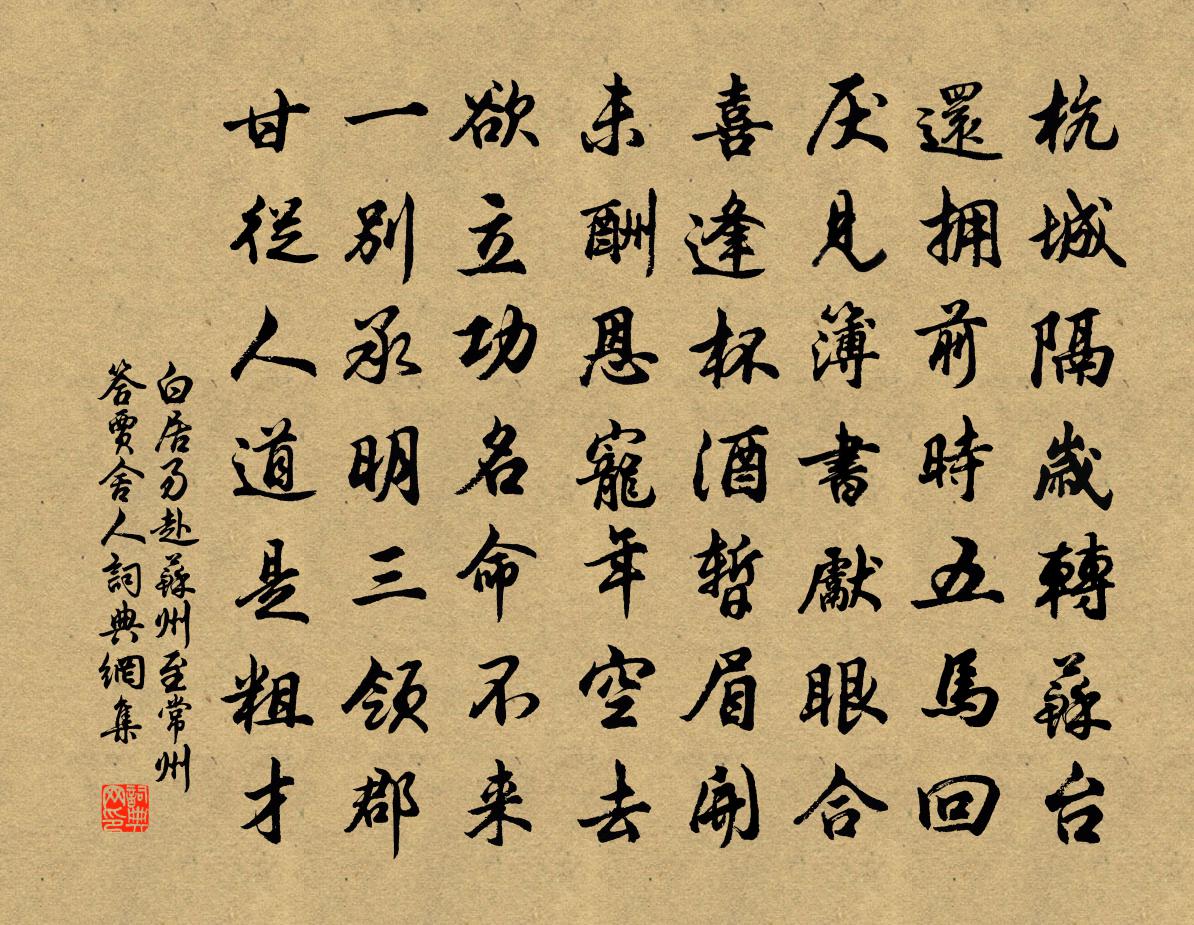 杭城隔歲轉蘇台
還拥前時五馬回
厌見簿書獻眼合
喜逢杯酒暫眉開
未酬恩寵年空去
欲立功名命不来
一别承明三领郡
甘從人道是粗才
白居易赴蘇州至常州
答賈舍人詞典網集
詞典網印